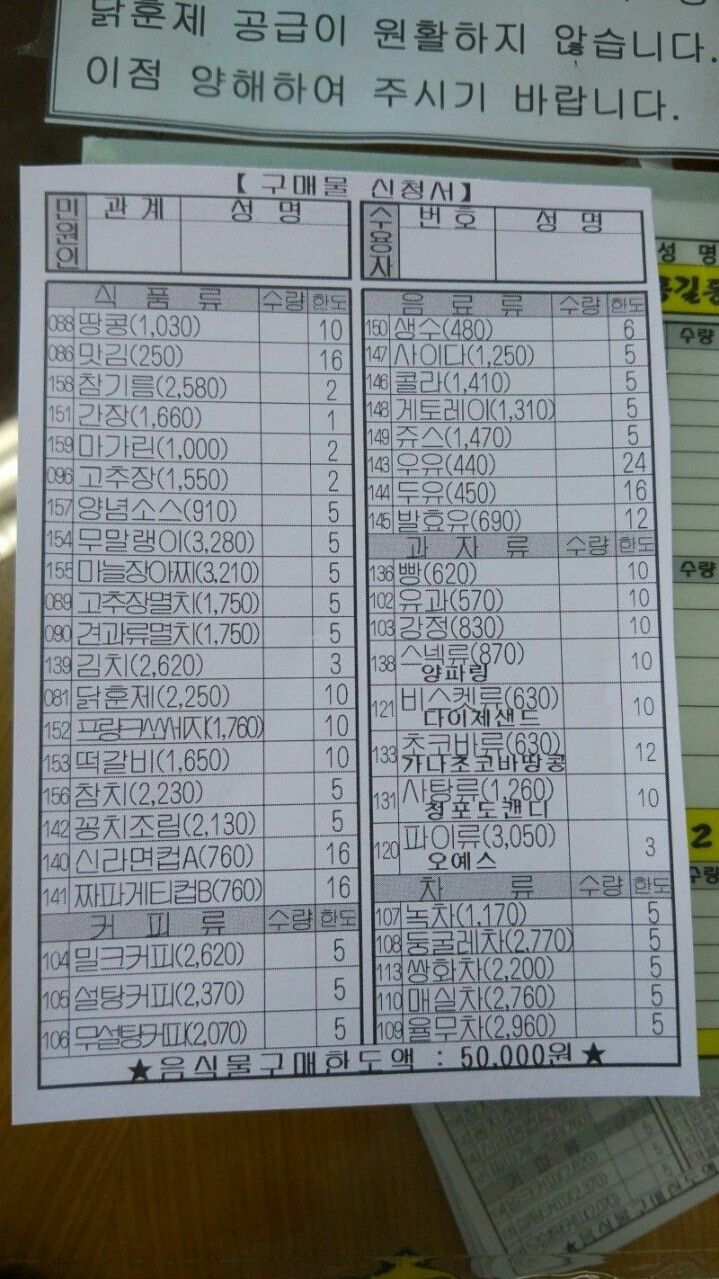 닭훈제 공급이 원활하지 않습니다.
이점 양해하여 주시기 바랍니다.
【 구매물 신청서】
민원인 관계 성 명
수용자 번호 성 명
식 품 류 수량 한도
088 땅콩(1,030) 10
086 맛김(250) 16
158 참기름(2,580) 2
151 간장(1,660) 1
159 마가린(1,000) 2
096 고추장(1,550) 2
157 양념소스(910) 5
154 무말랭이(3,280) 5
155 마늘장아찌(3,210) 5
089 고추장멸치(1,750) 5
090 견과류멸치(1,750) 5
139 김치(2,620) 3
081 닭훈제(2,250) 10
152 프랑크쏘세지(1,760) 10
153 떡갈비(1,650) 10
156 참치(2,230) 5
142 꽁치조림(2,130) 5
140 신라면컵A(760) 16
141 짜파게티컵B(760) 16
커 피 류 수량 한도
104 밀크커피(2,620) 5
105 설탕커피(2,370) 5
106 무설탕커피(2,070) 5
음 료 류 수량 한도
150 생수(480) 6
147 사이다(1,250) 5
146 콜라(1,410) 5
148 게토레이(1,310) 5
149 쥬스(1,470) 5
143 우유(440) 24
144 두유(450) 16
145 발효유(690) 12
과 자 류 수량 한도
136 빵(620) 10
102 유과(570) 10
103 강정(830) 10
138 스넥류(870) 10
양파링
121 비스켓류(630) 10
다이제샌드
133 초코바류(630) 12
가나초코바땅콩
131 사탕류(1,260) 10
청포도캔디
120 파이류(3,050) 3
오예스
차 류 수량 한도
107 녹차(1,170) 5
108 둥굴레차(2,770) 5
113 쌍화차(2,200) 5
110 매실차(2,760) 5
109 율무차(2,960) 5
★음식물구매한도액 : 50,000원★
성 명
수량
수량
2
수량
★음식물구매한도액